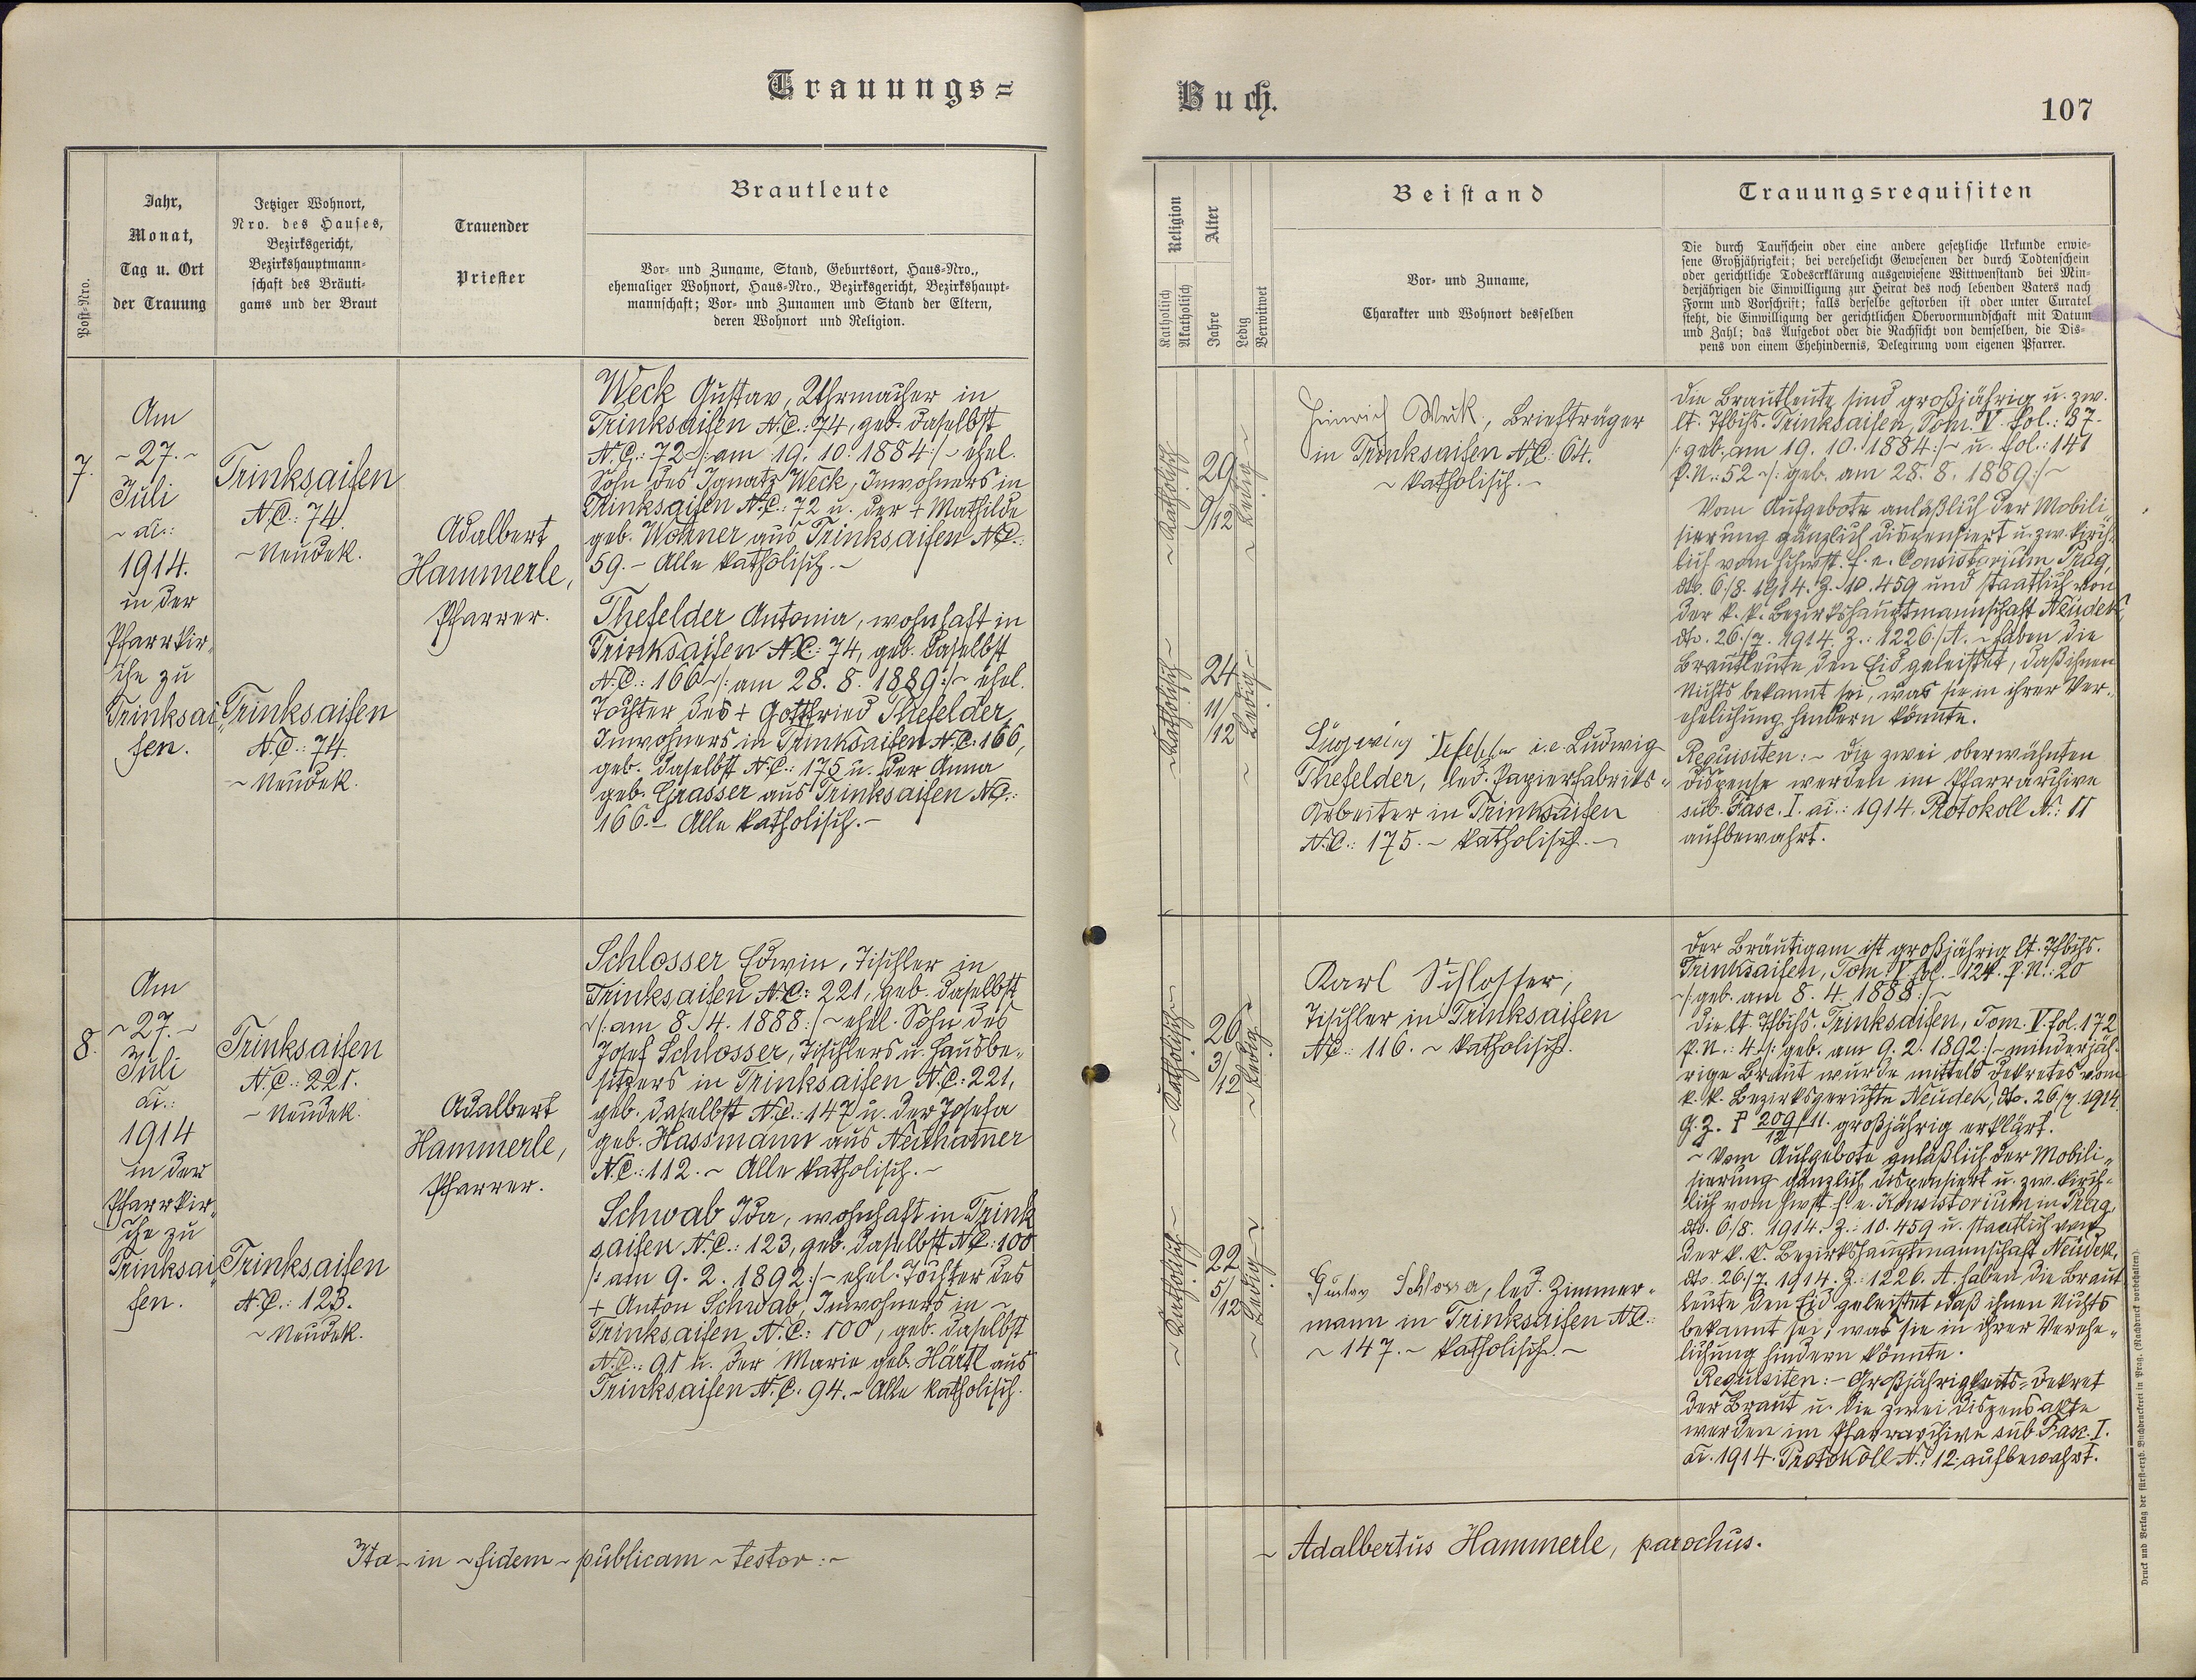 Trauungs=
Buch.
107
Post-Nro.
Jahr,
Monat,
Tag u. Ort
der Trauung
Jetziger Wohnort,
Nro. des Hauses,
Bezirksgericht,
Bezirkshauptmann-
schaft des Bräuti-
gams und der Braut
Trauender
Priester
Brautleute
Vor- und Zuname, Stand, Geburtsort, Haus-Nro.,
ehemaliger Wohnort, Haus-Nro., Bezirksgericht, Bezirkshaupt-
mannschaft; Vor- und Zunamen und Stand der Eltern,
deren Wohnort und Religion.
Religion
Katholisch
Akatholisch
Alter
Jahre
Ledig
Verwitwet
Beistand
Vor- und Zuname,
Charakter und Wohnort desselben
Trauungsrequisiten
Die durch Taufschein oder eine andere gesetzliche Urkunde erwie-
sene Großjährigkeit; bei verehelicht Gewesenen der durch Todtenschein
oder gerichtliche Todeserklärung ausgewiesene Wittwenstand bei Min-
derjährigen die Einwilligung zur Heirat des noch lebenden Vaters nach
Form und Vorschrift; falls derselbe gestorben ist oder unter Curatel
steht, die Einwilligung der gerichtlichen Obervormundschaft mit Datum
und Zahl; das Aufgebot oder die Nachsicht von demselben, die Dis-
pens von einem Ehehindernis, Delegirung vom eigenen Pfarrer.
7.
Am
~ 27. ~
Juli
~ ai.:
1914.
in der
Pfarrkir„
che zu
Trinksai„
fen.
Trinksaifen
N.C.: 74.
~ Neudek.
Trinksaifen
N.C.: 74.
~ Neudek.
Adalbert
Hammerle,
Pfarrer.
Weck Gustav, Uhrmacher in
Trinksaifen N.C.: 74, geb. daselbst
N.C.: 72 ~/: am 19. 10. 1884 :/~ ehel.
Sohn des Ignatz Weck, Inwohners in
Trinksaifen N.C.: 72 u. der + Mathilde
geb. Wohner aus Trinksaifen N.C.:
59. ~ Alle katholisch. ~
Thefelder Antonia, wohnhaft in
Trinksaifen N.C.: 74, geb. daselbst
N.C.: 166 ~/: am 28. 8. 1889 :/~ ehel.
Tochter des + Gottfried Thefelder,
Inwohners in Trinksaifen N.C. 166,
geb. daselbst N.C.: 175 u. der Anna
geb. Grasser aus Trinksaifen N.C.:
166. ~ Alle katholisch. ~
~ Katholisch ~
29
9/12
~ Ledig ~
~ Katholisch ~
24
11/12
~ Ledig ~
Heinrich Weck, Briefträger
in Trinksaifen N.C. 64.
~ katholisch. ~
i.e. Ludwig
Thefelder, led. Papierfabriks-
Arbeiter in Trinksaifen
N.C.: 175. ~ katholisch. ~
Die Brautleute sind großjährig u. zw.
lt. Tfbchs. Trinksaifen, Tom. V. fol.: 87.
/: geb. am 19. 10. 1884 :/~ u. fol.: 141
P.N.: 52 ~/: geb. am 28. 8. 1889 :/~
Vom Aufgebote anläßlich der Mobili„
sierung gänzlich dispensiert u. zw. kirch„
lich vom hchwst. f. e. Consistorium Prag,
dto. 6./8. 1914. Z. 10.459 und staatlich von
der k. k. Bezirkshauptmannschaft Neudek,
dto. 26./7. 1914. Z.: 1226/A. ~ haben die
Brautleute den Eid geleistet, daß ihnen
Nichts bekannt sei, was sie in ihrer Ver„
ehelichung hindern könnte.
Requisiten: ~ Die zwei oberwähnten
Dispense werden im Pfarrarchive
sub. Fasc. I. ai.: 1914. Protokoll N.: 11
aufbewahrt.
8.
Am
~ 27. ~
Juli
ai.:
1914
in der
Pfarrkir„
che zu
Trinksai„
fen.
Trinksaifen
N.C.: 221.
~ Neudek.
Trinksaifen
N.C.: 123.
~ Neudek.
Adalbert
Hammerle,
Pfarrer.
Schlosser Edwin, Tischler in
Trinksaifen N.C.: 221, geb. daselbst
~/: am 8. 4. 1888 :/~ ehel. Sohn des
Josef Schlosser, Tischlers u. Hausbe„
sitzers in Trinksaifen N.C.: 221,
geb. daselbst N.C.: 147 u. der Josefa
geb. Hassmann aus
N.C.: 112. ~ Alle katholisch. ~
Schwab Ida, wohnhaft in Trink
saifen N.C.: 123, geb. daselbst N.C.: 100
/: am 9. 2. 1892 :/~ ehel. Tochter des
+ Anton Schwab, Inwohners in ~
Trinksaifen, N.C.: 100, geb. daselbst
N.C.: 91 u. der Marie geb. Härtl aus
Trinksaifen N.C. 94. ~ Alle katholisch.
~ Katholisch ~
26
3/12
~ Ledig ~
~ Katholisch ~
22
5/12
~ Ledig ~
Karl Schlosser,
Tischler in Trinksaifen
N.C.: 116. ~ katholisch.
Gustav Schlosser, led. Zimmer-
mann in Trinksaifen N.C.:
~ 147. ~ katholisch. ~
Der Bräutigam ist großjährig lt. Tfbchs.
Trinksaifen, Tom. V. fol. 124. P.N.: 20
~/: geb. am 8. 4. 1888 :/~
Die lt. Tfbchs. Trinksaifen, Tom. V. fol. 172
P.N.: 4 /: geb. am 9. 2. 1892 :/~ minderjäh„
rige Braut wurde mittels Dekretes vom
k. k. Bezirksgerichte Neudek, dto. 26./7. 1914.
G. Z. P 209/12 /11. großjährig erklärt.
~ Vom Aufgebote anläßlich der Mobili„
sierung gänzlich dispensiert u. zw. kirch-
lich vom hwst. f. e. Konsistorium in Prag,
dto. 6./8. 1914. Z.: 10.459 u. staatlich von
der k. k. Bezirkshauptmannschaft Neudek,
dto. 26./7. 1914. Z.: 1226. A. haben die Braut
leute den Eid geleistet daß ihnen Nichts
bekannt sei, was sie in ihrer Verehe„
lichung hindern könnte.
Requisiten: ~ Großjährigkeits-Dekret
der Braut u. die zwei Dispensakte
werden im Pfarrarchive sub. Fasc. I.
ai. 1914. Protokoll N.: 12. aufbewahrt.
Ita ~ in ~ fidem ~ publicam ~ testor: ~
~ Adalbertus Hammerle, parochus.
Druck und Verlag der fürst-erzb. Buchdruckerei in Prag. (Nachdruck vorbehalten).